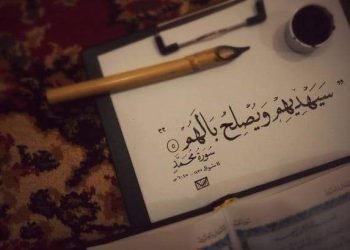 ”سَيَهْدِيهِمْ وَيُصْلِحُ بَالَهُمْ“ ٥
سورة محمد